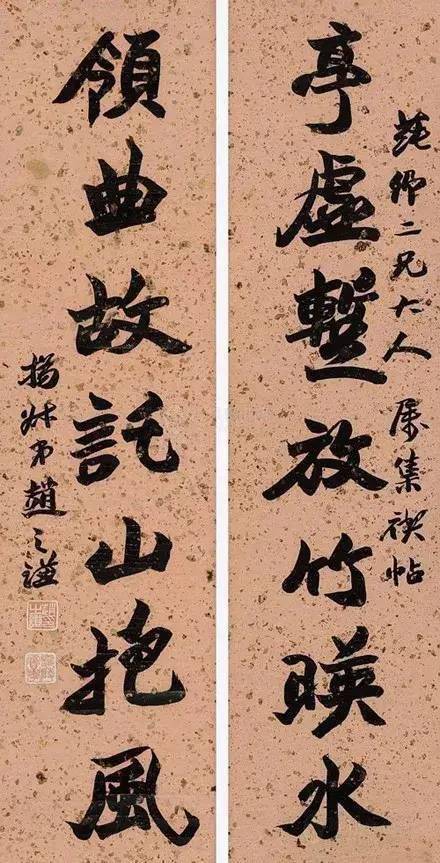 亭虛暫放竹暎水
卿二兄大人 屬集禊帖
領曲故託山抱風
撝叔弟趙之謙